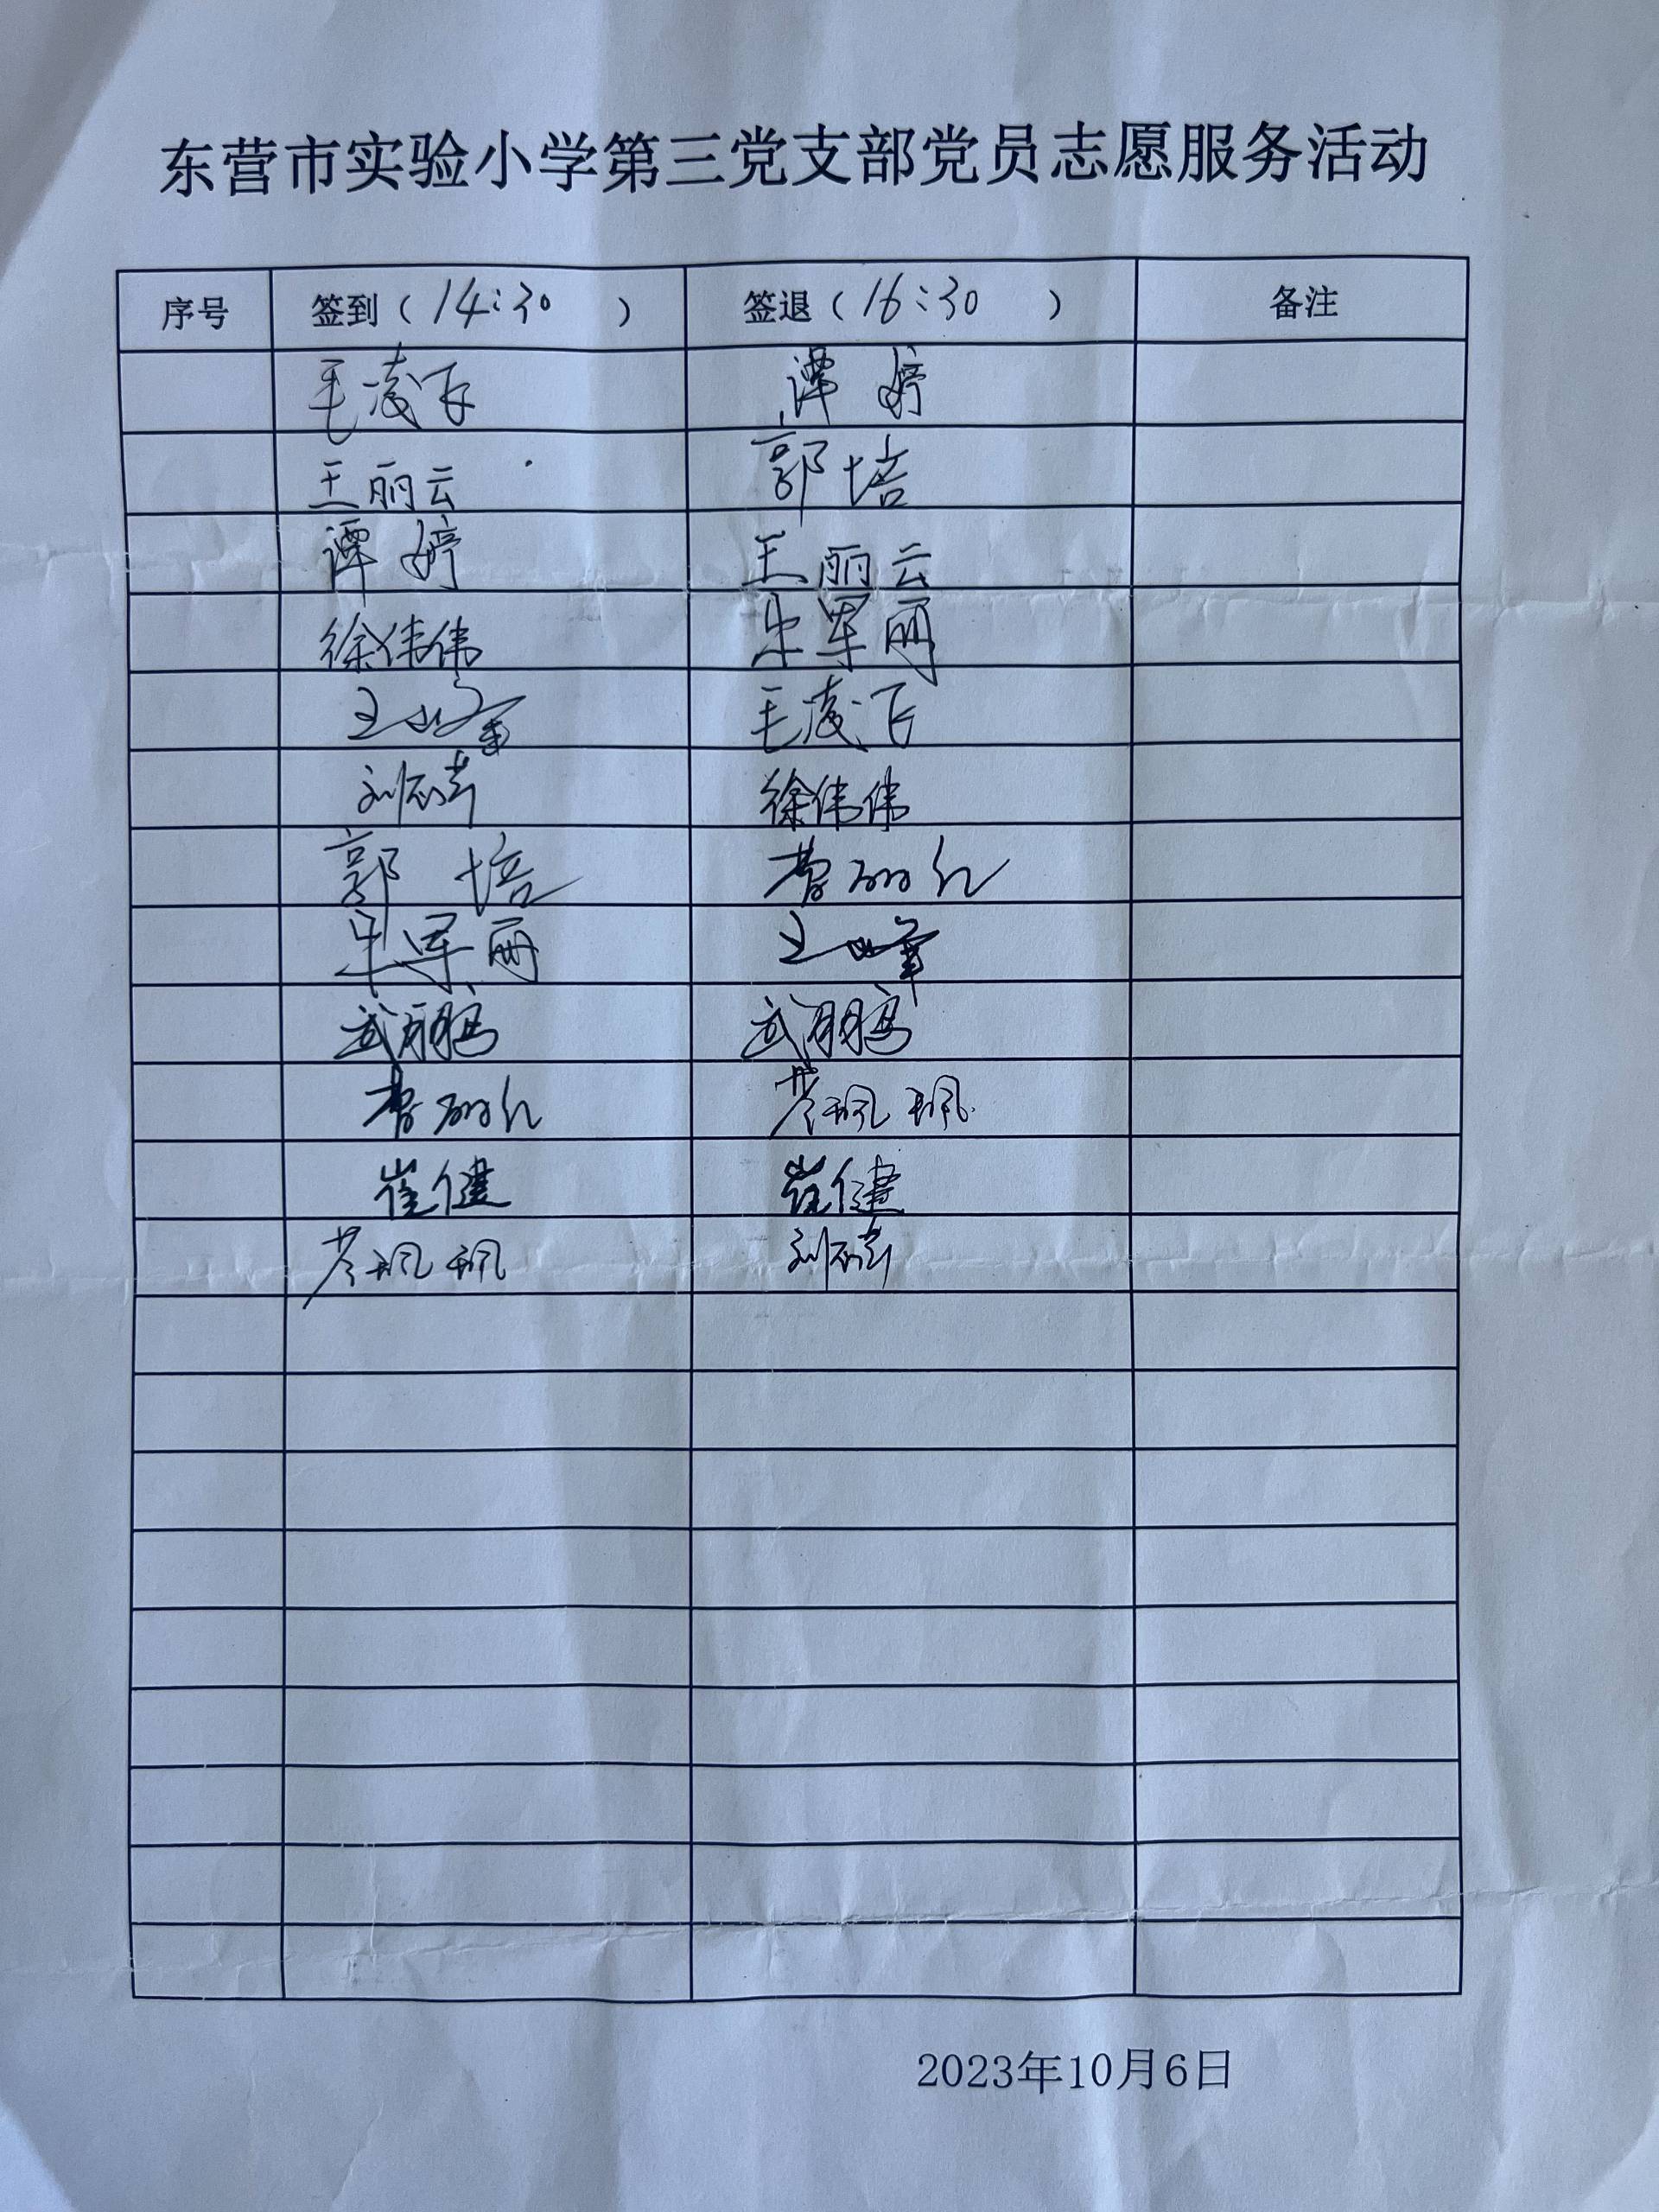 东营市实验小学第三党支部党员志愿服务活动
序号 签到（14:30 ） 签退（16:30 ） 备注
毛凌飞 谭婷
王丽云 郭培
谭婷 王丽云
徐伟伟 军丽
王峰 毛凌飞
刘 徐伟伟
郭培 曹丽红
军丽 王峰
武朋鹏 武朋鹏
曹丽红 珮珮
崔健 崔健
珮珮 刘
2023年10月6日